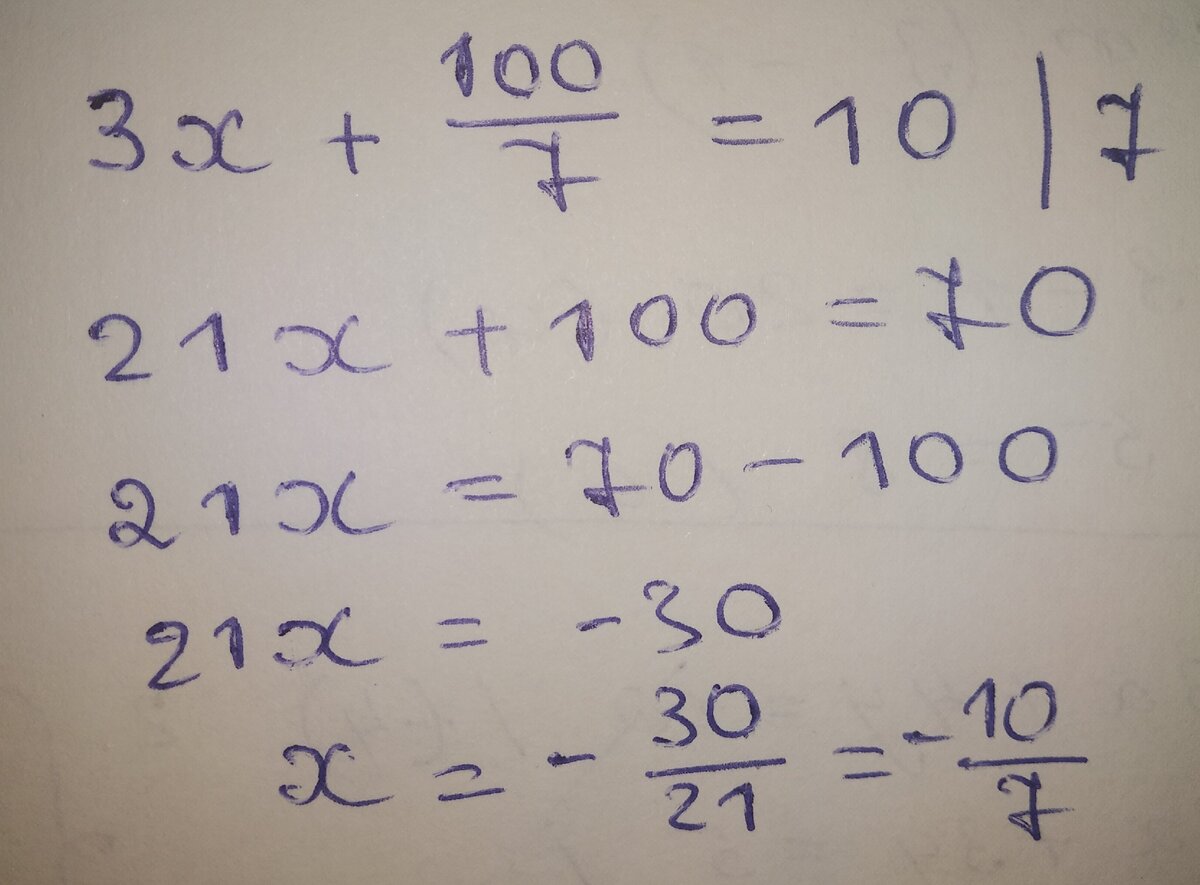 3x + 100/7 = 10 | 7
21x + 100 = 70
21x = 70 - 100
21x = -30
x = - 30/21 = - 10/7